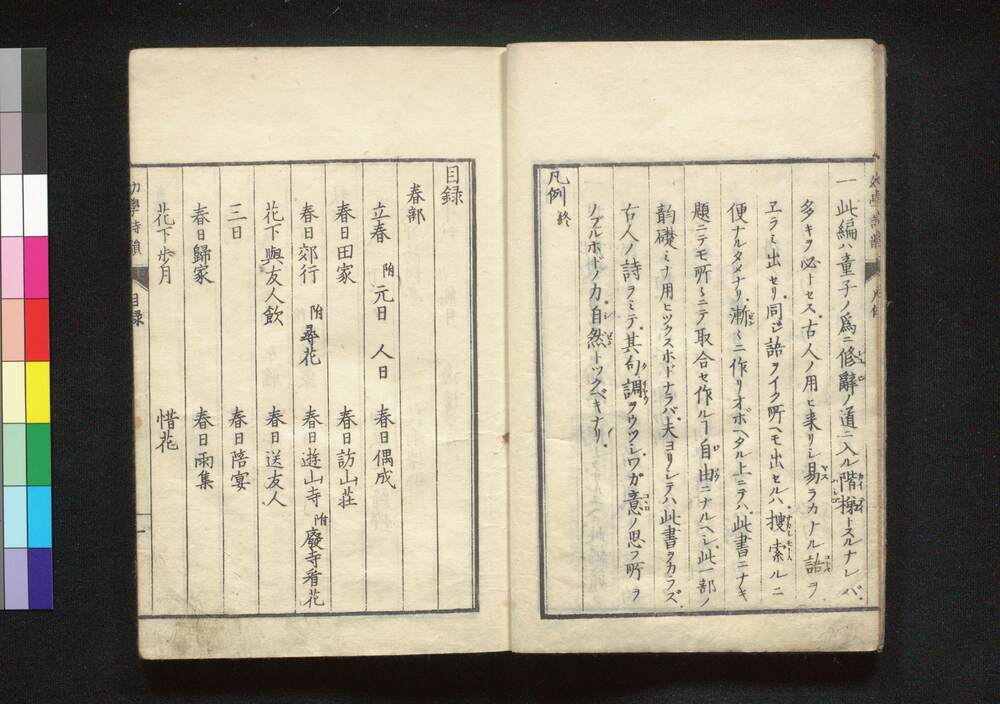 一此編ハ童子ノ爲ニ修辭ノ道ニ入ル階梯トスルナレバ
多キヲ必トセス古人ノ用ヒ来リシ易ラカナル語ヲ
ヱラミ出セリ同シ語ヲイク所ヘモ出セルハ捜索ルニ
便ナルタメナリ漸ミニ作リオボヘタル上ニテハ此書ニナキ
題ニテモ所ミニテ取合セ作ルヿ自由ニナルヘシ此一部ノ
韵礎ミナ用ヒツクスホドナラバ夫ヨリシテハ此書ヲカラズ
古人ノ詩ヲミテ其句調ヲウツシワガ意ノ思フ所ヲ
ノブルホドノ力自然トツクベキナリ
凡例終
目録
春部
立春 附元日 人日 春日偶成
春日田家 春日訪山荘
春日郊行 附尋花 春日遊山寺 附廢寺看花
花下與友人飲 春日送友人
三日 春日陪宴
春日歸家 春日雨集
花下歩月 惜花
幼學詩韻 目録